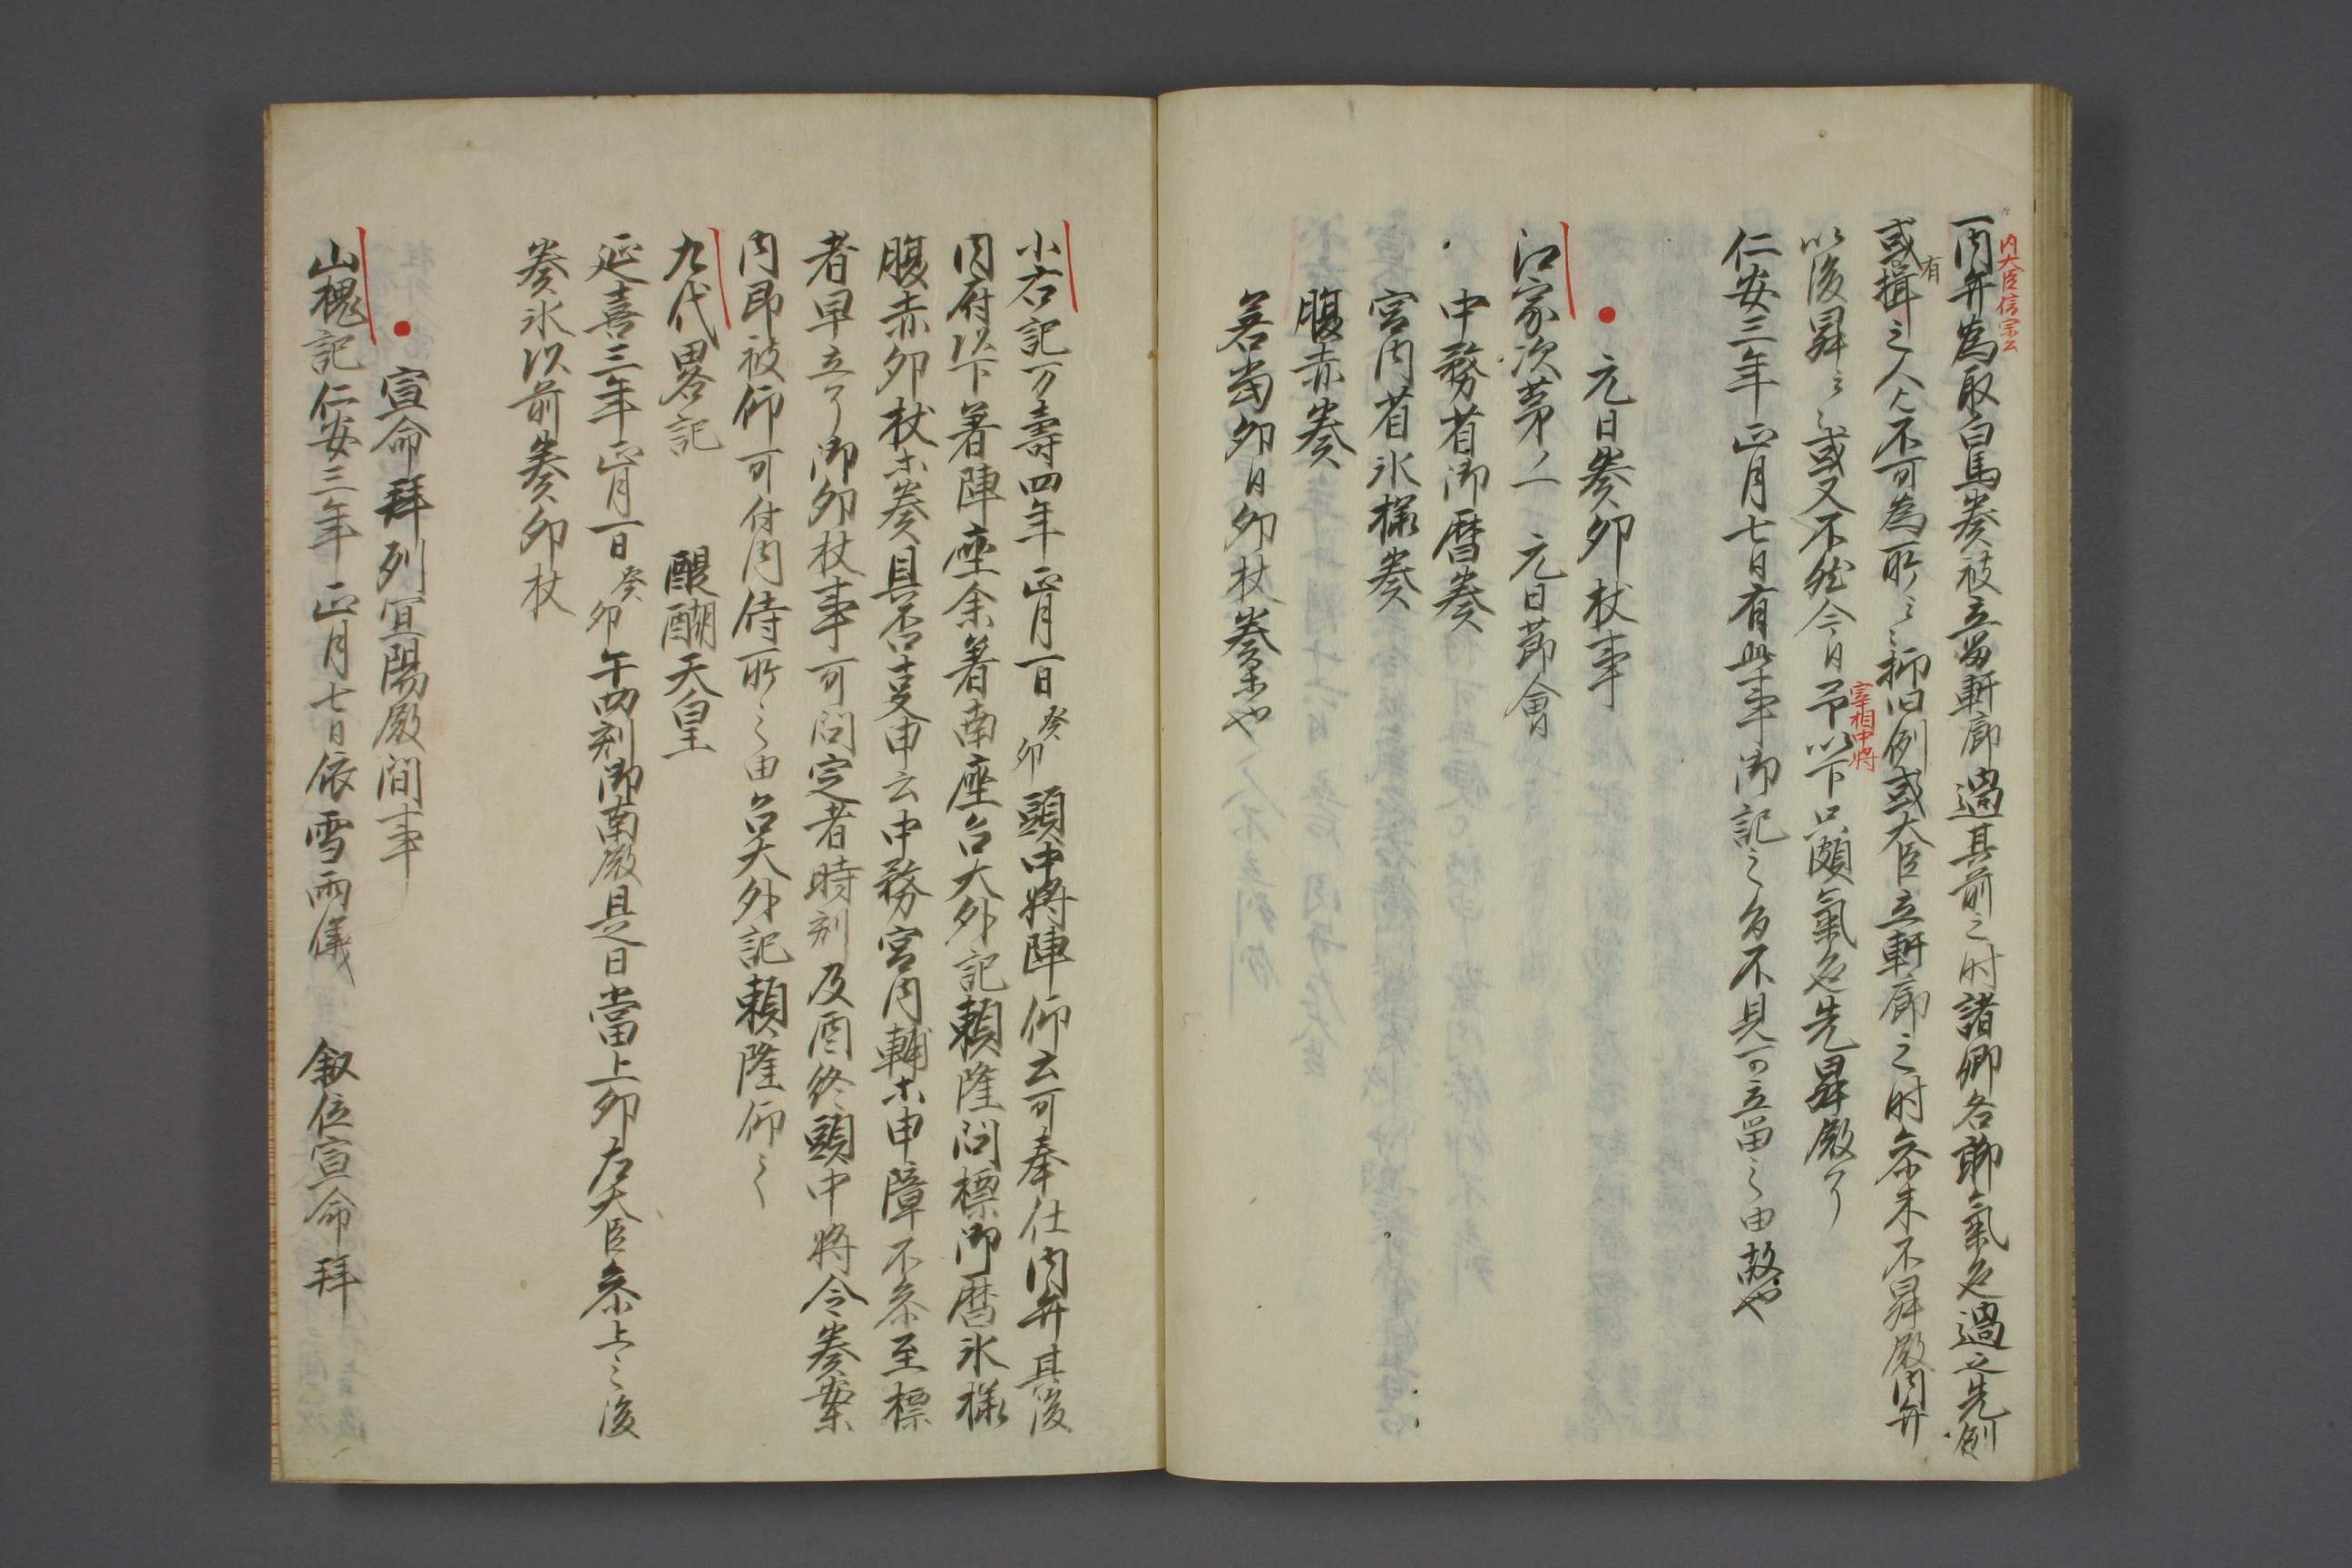 内大臣信宗公
一内弁為取白馬奏被立留軒廊過其前之時諸卿各聊氣色過之先例
有
或揖之人也不可為所之抑旧例或大臣立軒廊之時参木不昇殿内弁
宰相中将
以後昇之或又不然今日予以下只頗氣色先昇殿了
仁安三年正月七日有此事御記之旨不見可立留之由故也
元日奏卯杖事
江家次第ノ一 元日節會
中務省御暦奏
宮内省氷様奏
腹赤奏
若當卯日卯杖奏ホ也
小右記万壽四年正月一日癸卯頭中将陣仰云可奉仕内弁其後
内府以下着陣座余着南座召大外記頼隆問標御暦氷様
腹赤卯杖ホ奏具否申云中務宮内輔ホ申障不参至標
者早立了御卯杖事可問定者時刻及酉終頭中将令奏案
内即被仰可付内侍所之由召大外記頼隆仰之
九代畧記 醍醐天皇
延喜三年正月一日癸卯午四刻御南殿是日當上卯左大臣参上之後
奏氷以前奏卯杖
宣命拜列宜陽殿間事
山槐記仁安三年正月七日依雪雨儀 叙位宣命拜